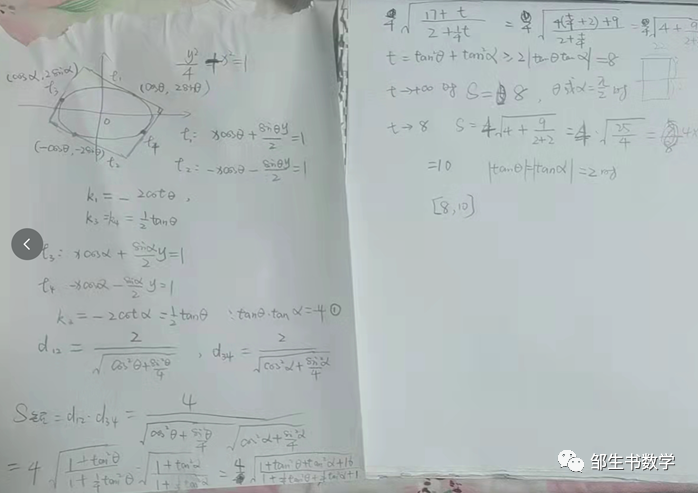 (cosα, 2sinα)
l₁
l₃
(cosθ, 2sinθ)
O
l₄
(-cosθ, -2sinθ)
l₂
y²/4 + x² = 1
l₁: xcosθ + sinθy/2 = 1
l₂: -xcosθ - sinθy/2 = 1
k₁ = -2cotθ,
k₃ = k₄ = ½tanθ
l₃: xcosα + sinα/2 y = 1
l₄ -xcosα - sinα/2 y = 1
= -2cotα = ½tanθ ∴ tanθ·tanα = -4 ①
d₁₂ = 2/√(cos²θ + sin²θ/4) , d₃₄ = 2/√(cos²α + sin²α/4)
= d₁₂·d₃₄ = 4/(√(cos²θ + sin²θ/4) √(cos²α + sin²α/4))
= 4√((1+tan²θ)/(1+¼tan²θ))·√((1+tan²α)/(1+¼tan²α)) = 4√((1+tan²θ+tan²α+16)/(1+¼tan²θ+¼tan²α+1))
4√((17+t)/(2+¼t)) = 4√((4(t/4+2)+9)/(2+t/4)) = 4√(4+9/(2+
t = tan²θ + tan²α ≥ 2|tanθtanα| = 8
t→+∞ 时 S = 8, θ或α = π/2 时
t→8 S = 4√(4+9/(2+2)) = 4·√(25/4) =
=10 |tanθ|=|tanα|=2时
[8,10]
邹生书数学